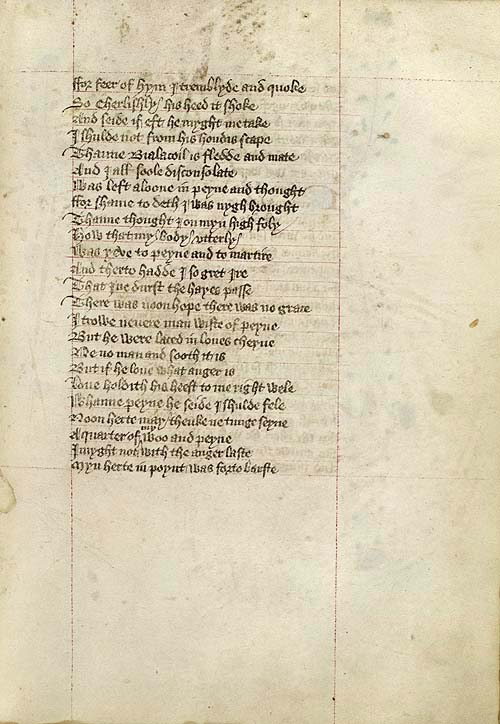 ffor feer of hym I tremblyde and quoke
So Cherlishly his heed it shoke
And seide if eft he myght me take
I shulde not from his hondis scape
Thanne Bialacoil is fledde and mate
And I all soole disconsolate
Was left aloone in peyne and thought
ffor shame to deth I was nygh brought
Thanne thought I on myn high foly
How that my body vtterly
Was yeve to peyne and to martire
And therto hadde I so gret Ire
That I ne durst the hayes passe
There was noon hope there was no grace
I trowe nevere man wiste of peyne
But he were laced in loues cheyne
Ne no man and sooth it is
But if he loue what anger is
Loue holdith his heest to me right wele
Whanne peyne he seide I shulde fele
Noon herte may thenke ne tunge seyne
A quarter of my woo and peyne
I myght not with the anger laste
Myn herte in poynt was forto barste